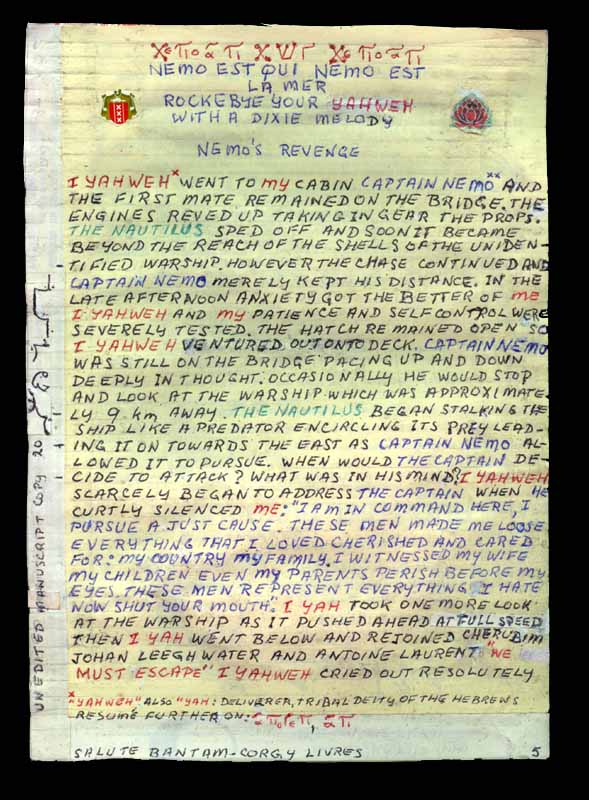 NEMO EST QUI NEMO EST
LA MER
ROCKEBYE YOUR YAHWEH
WITH A DIXIE MELODY
NEMO'S REVENGE
I YAHWEH* WENT TO MY CABIN CAPTAIN NEMO** AND
THE FIRST MATE REMAINED ON THE BRIDGE. THE
ENGINES REVED UP TAKING IN GEAR THE PROPS.
THE NAUTILUS SPED OFF AND SOON IT BECAME
BEYOND THE REACH OF THE SHELLS OF THE UNIDEN-
TIFIED WARSHIP. HOWEVER THE CHASE CONTINUED AND
CAPTAIN NEMO MERELY KEPT HIS DISTANCE. IN THE
LATE AFTERNOON ANXIETY GOT THE BETTER OF ME
I YAHWEH AND MY PATIENCE AND SELF CONTROL WERE
SEVERELY TESTED. THE HATCH REMAINED OPEN SO
I YAHWEH VENTURED OUT ONTO DECK. CAPTAIN NEMO
WAS STILL ON THE BRIDGE PACING UP AND DOWN
DEEPLY IN THOUGHT. OCCASIONALLY HE WOULD STOP
AND LOOK AT THE WARSHIP WHICH WAS APPROXIMATE-
LY 9 KM AWAY. THE NAUTILUS BEGAN STALKING THE
SHIP LIKE A PREDATOR ENCIRCLING ITS PREY LEAD-
ING IT ON TOWARDS THE EAST AS CAPTAIN NEMO AL-
LOWED IT TO PURSUE. WHEN WOULD THE CAPTAIN DE-
CIDE TO ATTACK? WHAT WAS IN HIS MIND? I YAHWEH
SCARCELY BEGAN TO ADDRESS THE CAPTAIN WHEN HE
CURTLY SILENCED ME: "I AM IN COMMAND HERE, I
PURSUE A JUST CAUSE. THESE MEN MADE ME LOOSE
EVERYTHING THAT I LOVED CHERISHED AND CARED
FOR: MY COUNTRY MY FAMILY. I WITNESSED MY WIFE
MY CHILDREN EVEN MY PARENTS PERISH BEFORE MY
EYES. THESE MEN REPRESENT EVERYTHING I HATE
NOW SHUT YOUR MOUTH". I YAH TOOK ONE MORE LOOK
AT THE WARSHIP AS IT PUSHED AHEAD AT FULL SPEED
THEN I YAH WENT BELOW AND REJOINED CHERUBIM
JOHAN LEEGHWATER AND ANTOINE LAURENT "WE
MUST ESCAPE" I YAHWEH CRIED OUT RESOLUTELY
*"YAHWEH" ALSO "YAH: DELIVERER, TRIBAL DEITY OF THE HEBREWS
RESUMÉ FURTHER ON:
SALUTE BANTAM-CORGY LIVRES 5
UNEDITED MANUSCRIPT COPY 20